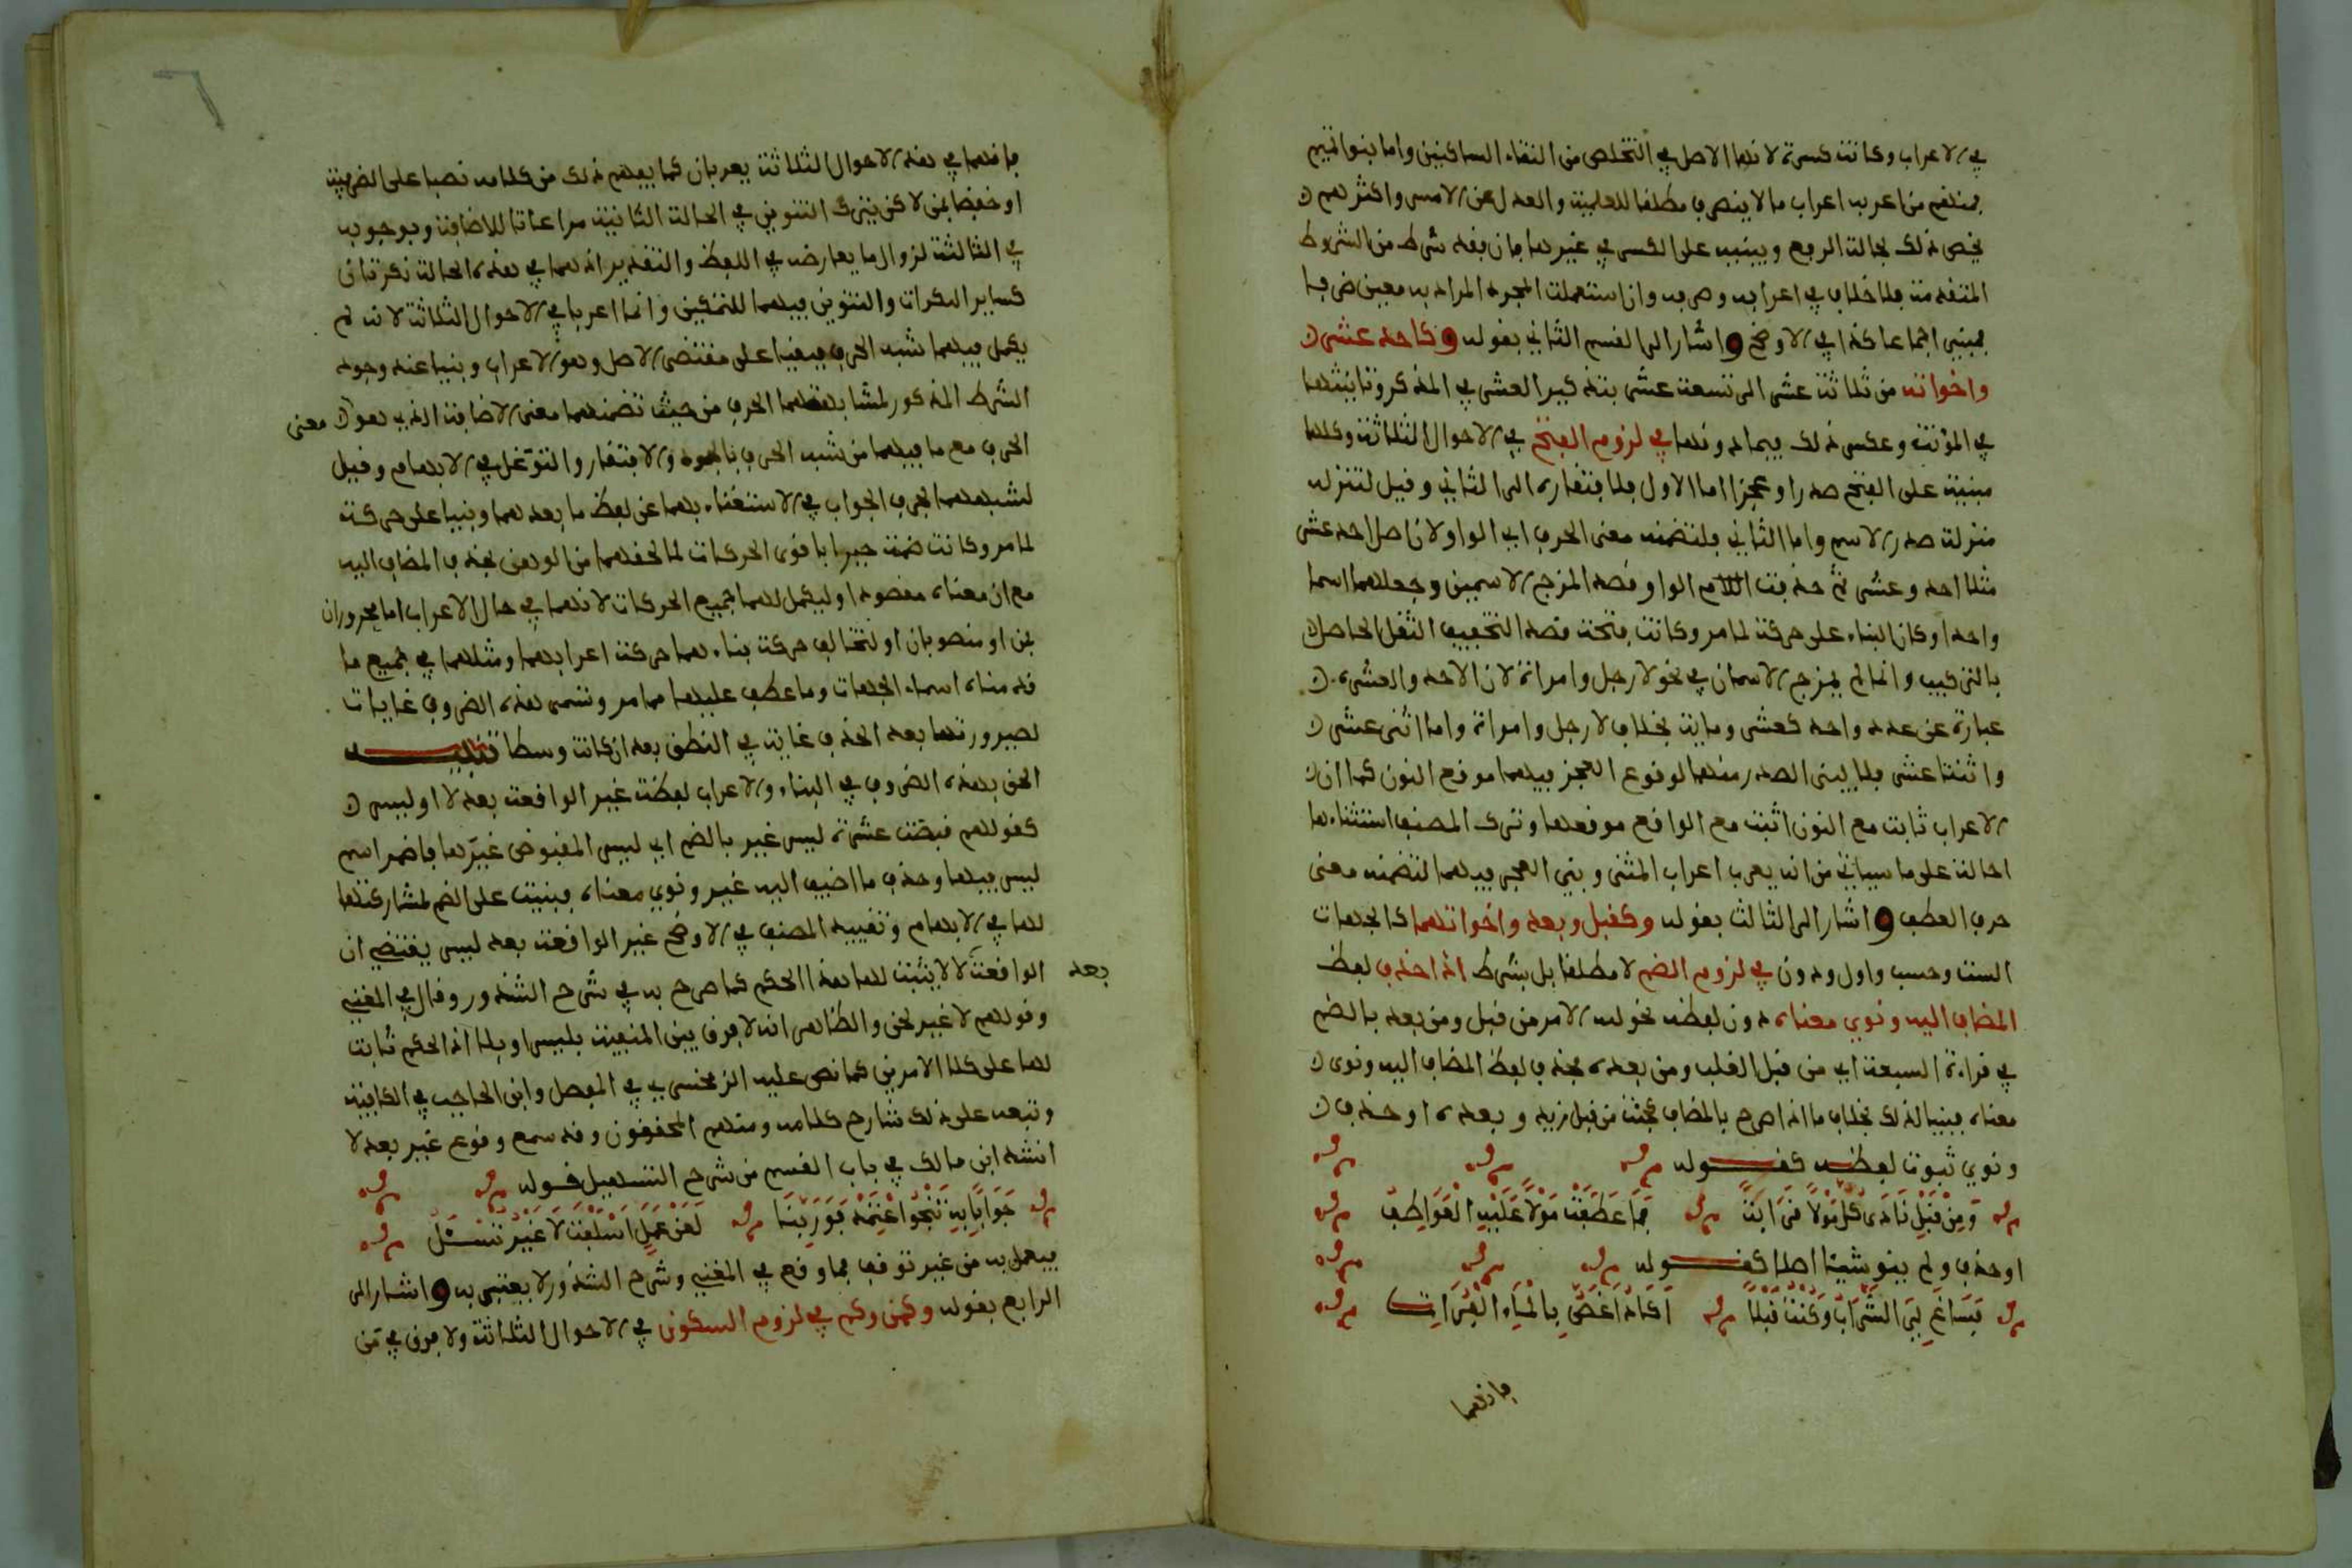 في الاعراب وكانت كسرة لانها الاصل في التخلص من التقاء الساكنين واما بنوا تميم
فمنهم من اعربه اعراب ما لا ينصرف مطلقا للعلمية والعدل عن الامس واكثرهم
يخص ذلك بحالة الرفع ويبنيه على الكسر في غيرها فان فقد شرط من الشروط
المتقدمة فلا خلاف في اعرابه وصرفه وان استعملت المجرد المراد به معين ظرفا
فمبني اجماعا كذا في الاوضح واشار الى القسم الثاني بقوله وكاحد عشر
واخواته من ثلاثة عشر الى تسعة عشر بتذكير العشر في المذكر وتانيثها
في المؤنث وعكس ذلك فيما دونها في لزوم الفتح في الاحوال الثلاثة وكلها
مبنية على الفتح صدرا وعجزا اما الاول فلافتقاره الى الثاني وقيل لتنزله
منزلة صدر الاسم واما الثاني فلتضمنه معنى الحرف اي الواو لان اصل احد عشر
مثلا احد وعشر ثم حذفت الواو قصد المزج الاسمين وجعلهما اسما
واحدا وكان البناء على حركة لما مر وكانت فتحة قصد التخفيف الثقل الحاصل
بالتركيب وانما لم يمزج الاسمان في نحو لا رجل وامراة لان الاحد والعشرة
عبارة عن عدد واحد كعشر وماية بخلاف لا رجل وامراة واما اثنى عشر
واثنتا عشر فلا يبنى الصدر منهما لوقوع العجز فيهما موقع النون كما ان
الاعراب ثابت مع النون اثبت مع الواقع موقعها وترك المصنف استثناءها
احالة على ما سياتي من انه يعرب اعراب المثنى وبني العجز فيهما لتضمنه معنى
حرف العطف واشار الى الثالث بقوله وكقبل وبعد واخواتهما كالجهات
الست وحسب واول ودون في لزوم الضم لا مطلقا بل بشرط اذا حذف لفظ
المضاف اليه ونوي معناه دون لفظه نحو لله الامر من قبل ومن بعد بالضم
في قراءة السبعة اي من قبل الغلب ومن بعده فحذف لفظ المضاف اليه ونوى
معناه فبنيا لذلك بخلاف ما اذا صرح بالمضاف كجئت من قبل زيد وبعده او حذف
ونوي ثبوت لفظه كقوله
وَمِنْ قَبْلِ نَادَى كُلُّ مَوْلًا قَرَابَةً فَمَا عَطَفَتْ مَوْلًا عَلَيْهِ الْعَوَاطِفُ
او حذف ولم ينو شيئا اصلا كقوله
فَسَاغَ لِيَ الشَّرَابُ وَكُنْتُ قَبْلًا اَكَادُ اَغَصُّ بِالْمَاءِ الْفُرَاتِ
فانهما
فانهما في هذه الاحوال الثلاثة يعربان كما يفهم ذلك من كلامه نصبا على الظرفية
او خفضا بمن لاكن يترك التنوين في الحالة الثانية مراعاتا للاضافة وبوجوبه
في الثالثة لزوال ما يعارضه في اللفظ والتقدير اذ هما في هذه الحالة نكرتان
كساير النكرات والتنوين فيهما للتمكين وانما اعربا في الاحوال الثلاثة لانه لم
يكمل فيهما شبه الحرف فبقيا على مقتضى الاصل وهو الاعراب وبنيا عند وجود
الشرط المذكور لمشابهتهما الحرف من حيث تضمنهما معنى الاضافة الذي هو معنى
الحرف مع ما فيهما من شبه الحرف بالجمود والافتقار والتوغل في الابهام وقيل
لشبههما بحرف الجواب في الاستغناء بهما عن لفظ ما بعدهما وبنيا على حركة
لما مر وكانت ضمة جبرا باقوى الحركات لما لحقهما من الوهن بحذف المضاف اليه
مع ان معناه مقصود او ليكمل لهما جميع الحركات لانهما في حال الاعراب اما مجروران
بمن او منصوبان او لتخالف حركة بناءهما حركة اعرابهما ومثلهما في جميع ما
قدمناه اسماء الجهات وما عطف عليها مما مر وتسمى هذه الظروف غايات
لصيرورتها بعد الحذف غاية في النطق بعد ان كانت وسطا تنبيه
الحق بهذه الظروف في البناء والاعراب لفظة غير الواقعة بعد لا او ليس
كقولهم قبضت عشرة ليس غير بالضم اي ليس المقبوض غيرها فاضمر اسم
ليس فيها وحذف ما اضيف اليه غير ونوي معناه فبنيت على الضم لمشاركتها
لها في الابهام وتقييد المصنف في الاوضح غير الواقعة بعد ليس يقتضي ان
الواقعة بعد لا لا يثبت لها هذا الحكم كما صرح به في شرح الشذور وقال في المغني
وقولهم لا غير لحن والظاهر انه لا فرق بين المنفية بليس او بلا اذ الحكم ثابت
لها على كلا الامرين كما نص عليه الزمخشري في المفصل وابن الحاجب في الكافية
وتبعه على ذلك شارح كلامه ومنهم المحققون وقد سمع وقوع غير بعد لا
انشد ابن مالك في باب القسم من شرح التسهيل قوله
جَوَابًا بِهِ تَنْجُوا اعْتَمِدْ فَوَرَبِّنَا لَعَنْ عَمَلٍ اَسْلَفْتَ لَا غَيْرُ تُسْئَلُ
فيعمل به من غير توقف فما وقع في المغني وشرح الشذور لا يعتبر به واشار الى
الرابع بقوله وكمن وكم في لزوم السكون في الاحوال الثلاثة ولا فرق في من